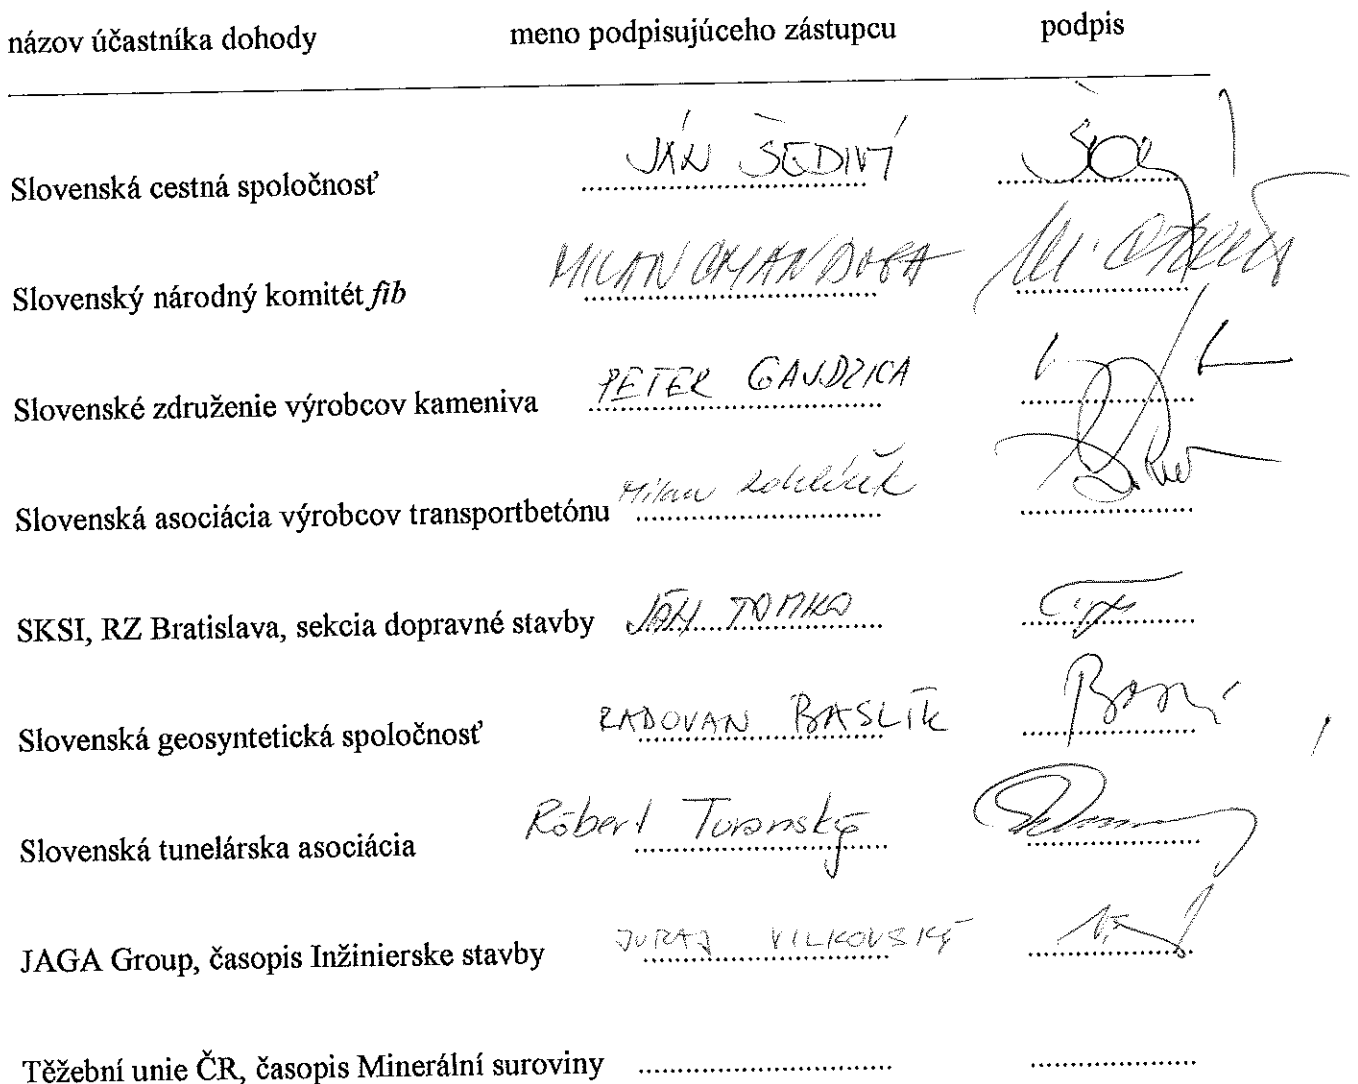 názov účastníka dohody meno podpisujúceho zástupcu podpis
Slovenská cestná spoločnosť JÁN ŠEDIVÝ
Slovenský národný komitét fib MILAN CHANDOGA
Slovenské združenie výrobcov kameniva PETER GAJDZICA
Slovenská asociácia výrobcov transportbetónu Milan
SKSI, RZ Bratislava, sekcia dopravné stavby JÁN TOMKO
Slovenská geosyntetická spoločnosť RADOVAN BASLÍK
Slovenská tunelárska asociácia Róbert Turanský
JAGA Group, časopis Inžinierske stavby JURAJ VILKOVSKÝ
Těžební unie ČR, časopis Minerální suroviny